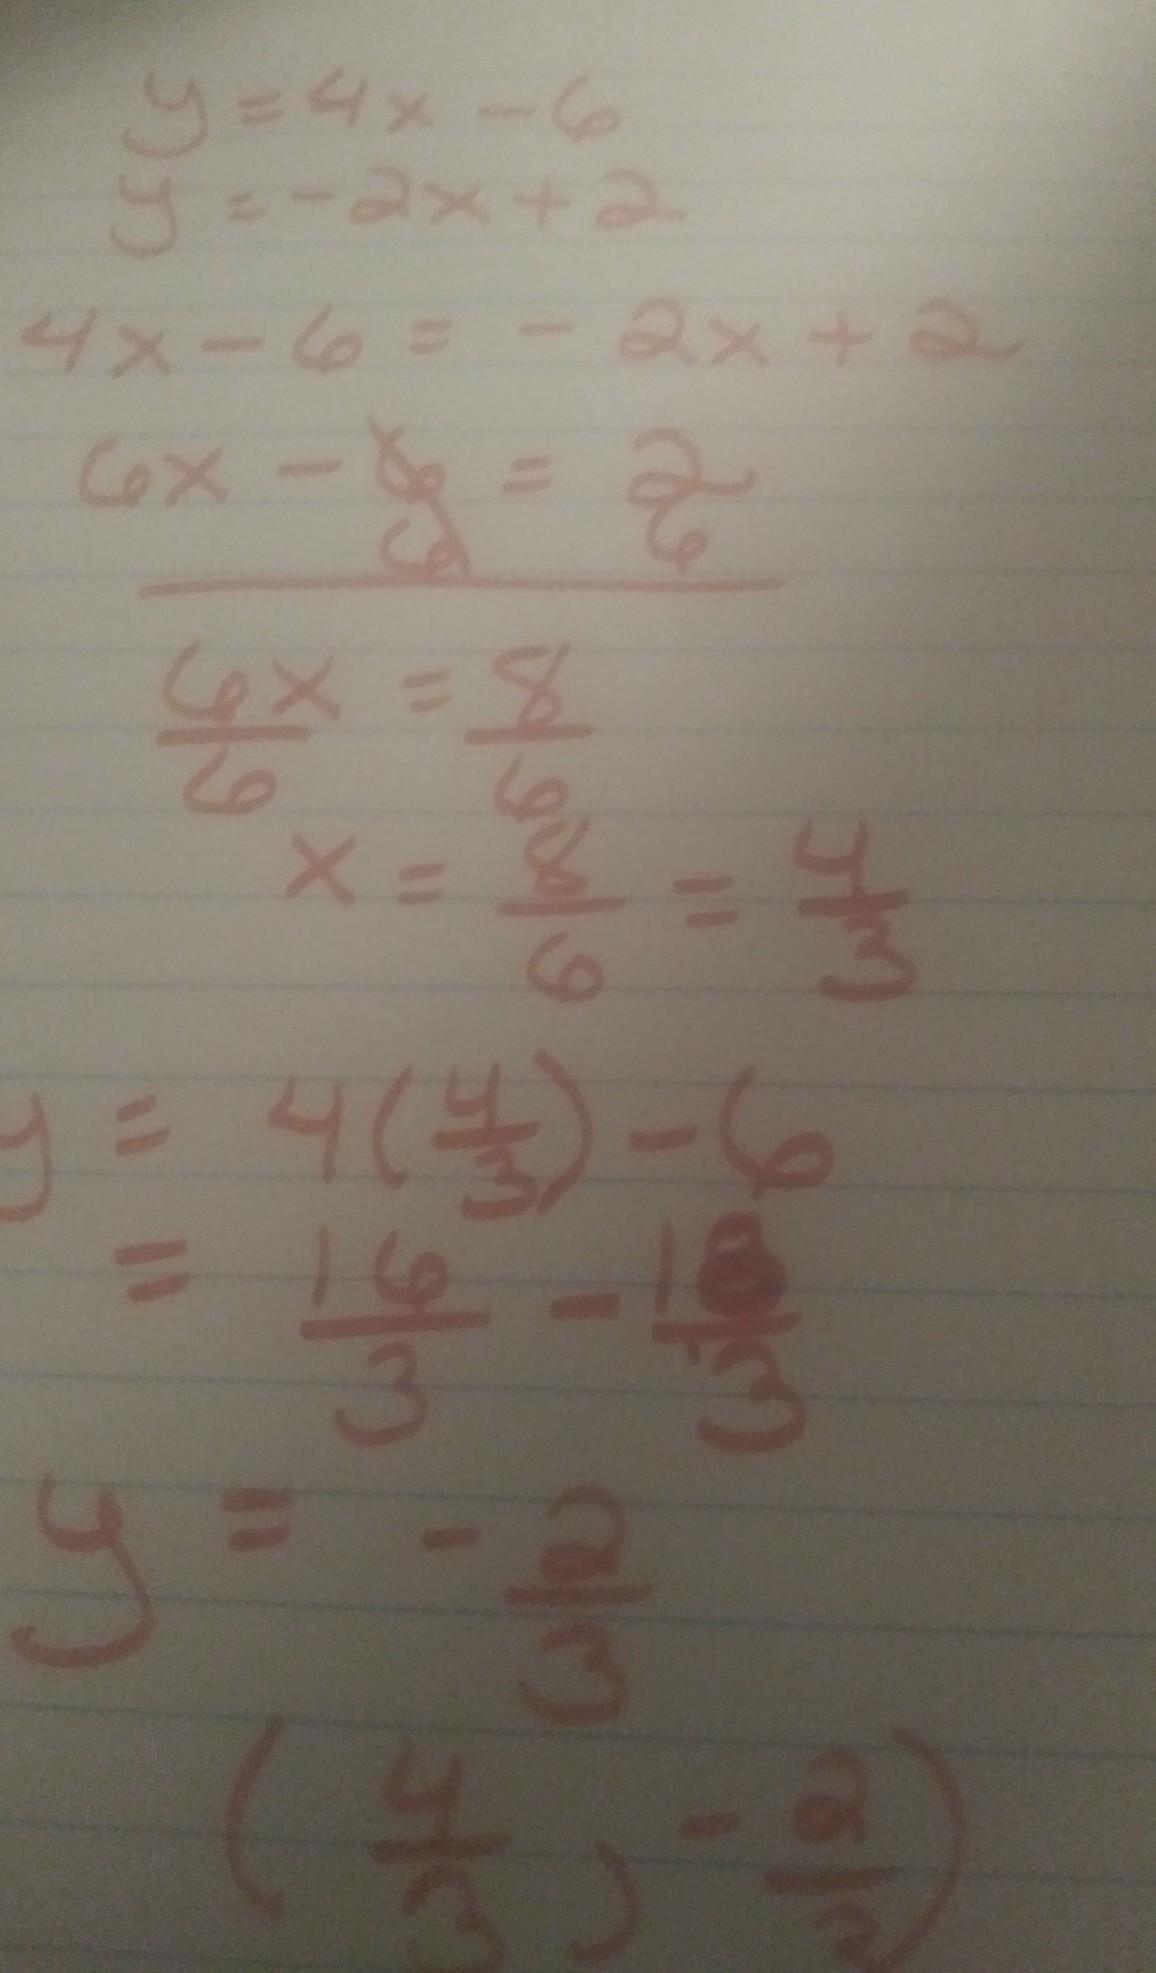 y = 4x - 6
y = -2x + 2
4x - 6 = -2x + 2
6x - 6 = 2
6 6
6x = 8
6 6
x = 8/6 = 4/3
y = 4(4/3) - 6
= 16/3 - 18/3
y = -2/3
(4/3, -2/3)